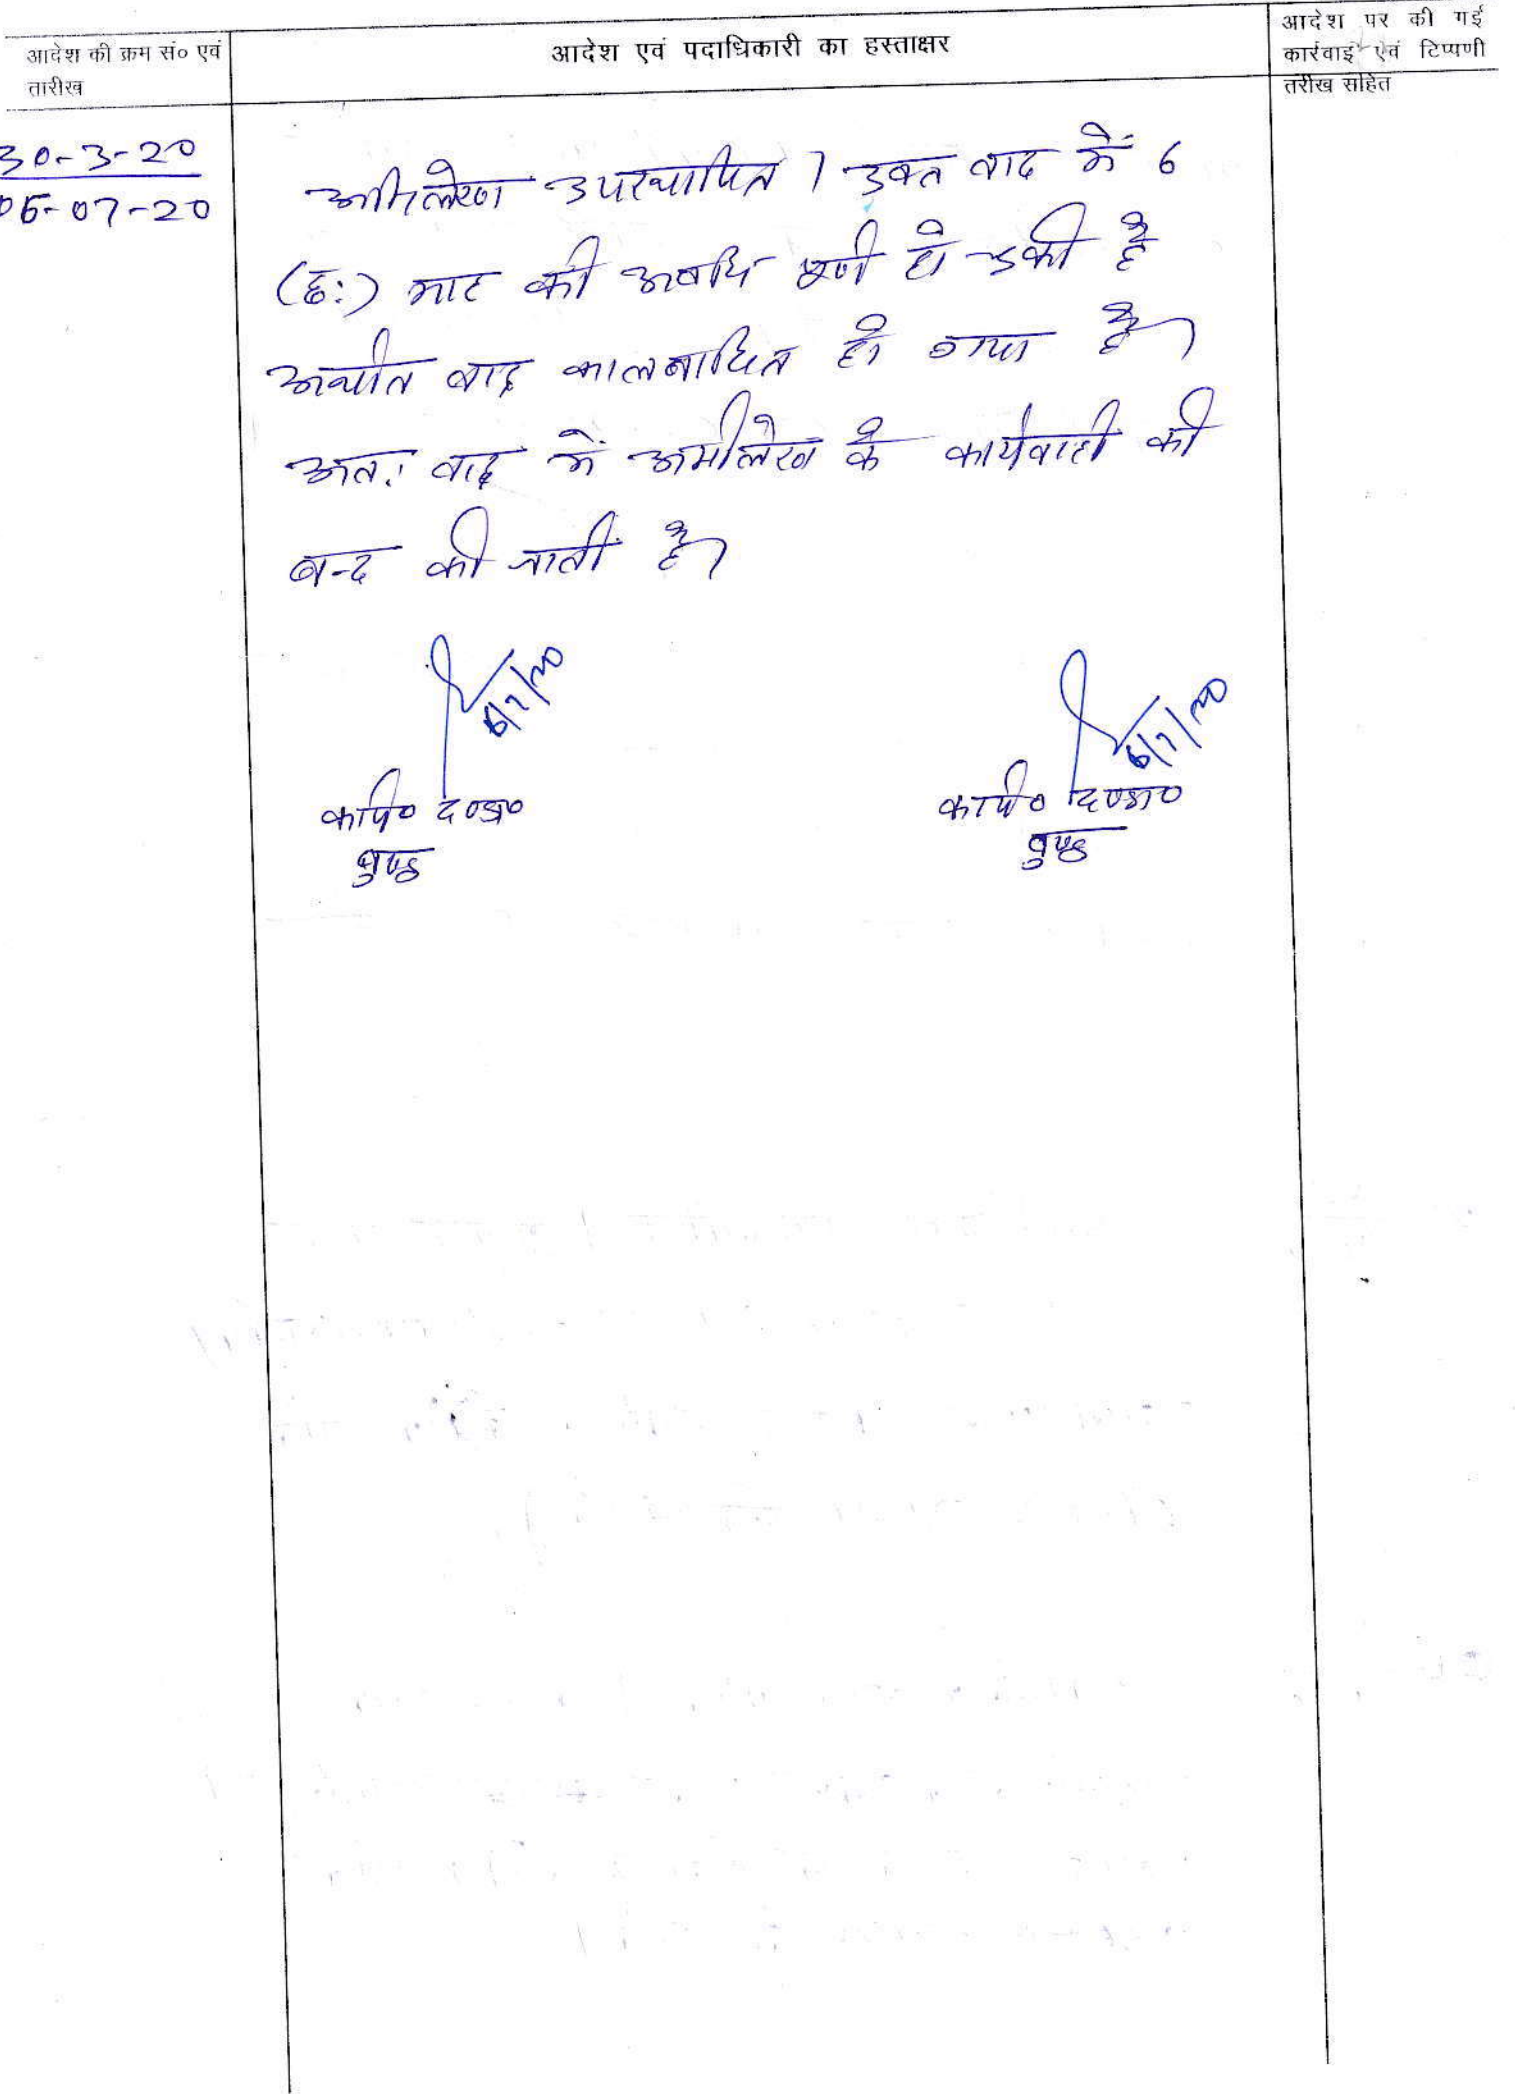 आदेश की क्रम सं० एवं
तारीख
आदेश एवं पदाधिकारी का हस्ताक्षर
आदेश पर की गई
कार्रवाई एवं टिप्पणी
तरीख सहित
30-3-20
06-07-20
अभिलेख उपस्थापित । उक्त वाद में 6
(छः) माह की अवधि पूर्ण हो चुकी है
अर्थात वाद कालबाधित हो गया है।
अतः वाद में अभीलेख के कार्यवाही की
बन्द की जाती है।
6/7/20
कार्य० दण्डा०
6/7/20
कार्य० दण्डा०